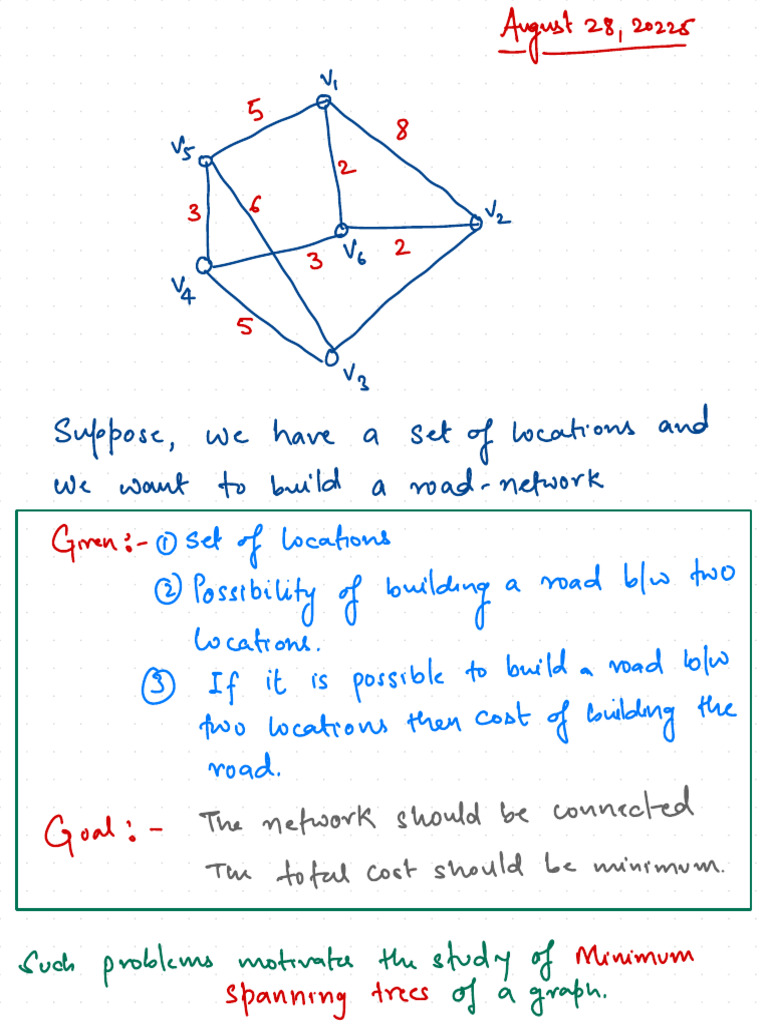 August 28, 20225
V1
5
8
V5
2
3
6
V2
V6
2
3
V4
5
V3
Suppose, we have a set of locations and
we want to build a road-network
Given:- ① Set of locations
② Possibility of building a road b/w two
locations.
③ If it is possible to build a road b/w
two locations then cost of building the
road.
Goal:- The network should be connected
The total cost should be minimum.
Such problems motivates the study of Minimum
spanning trees of a graph.